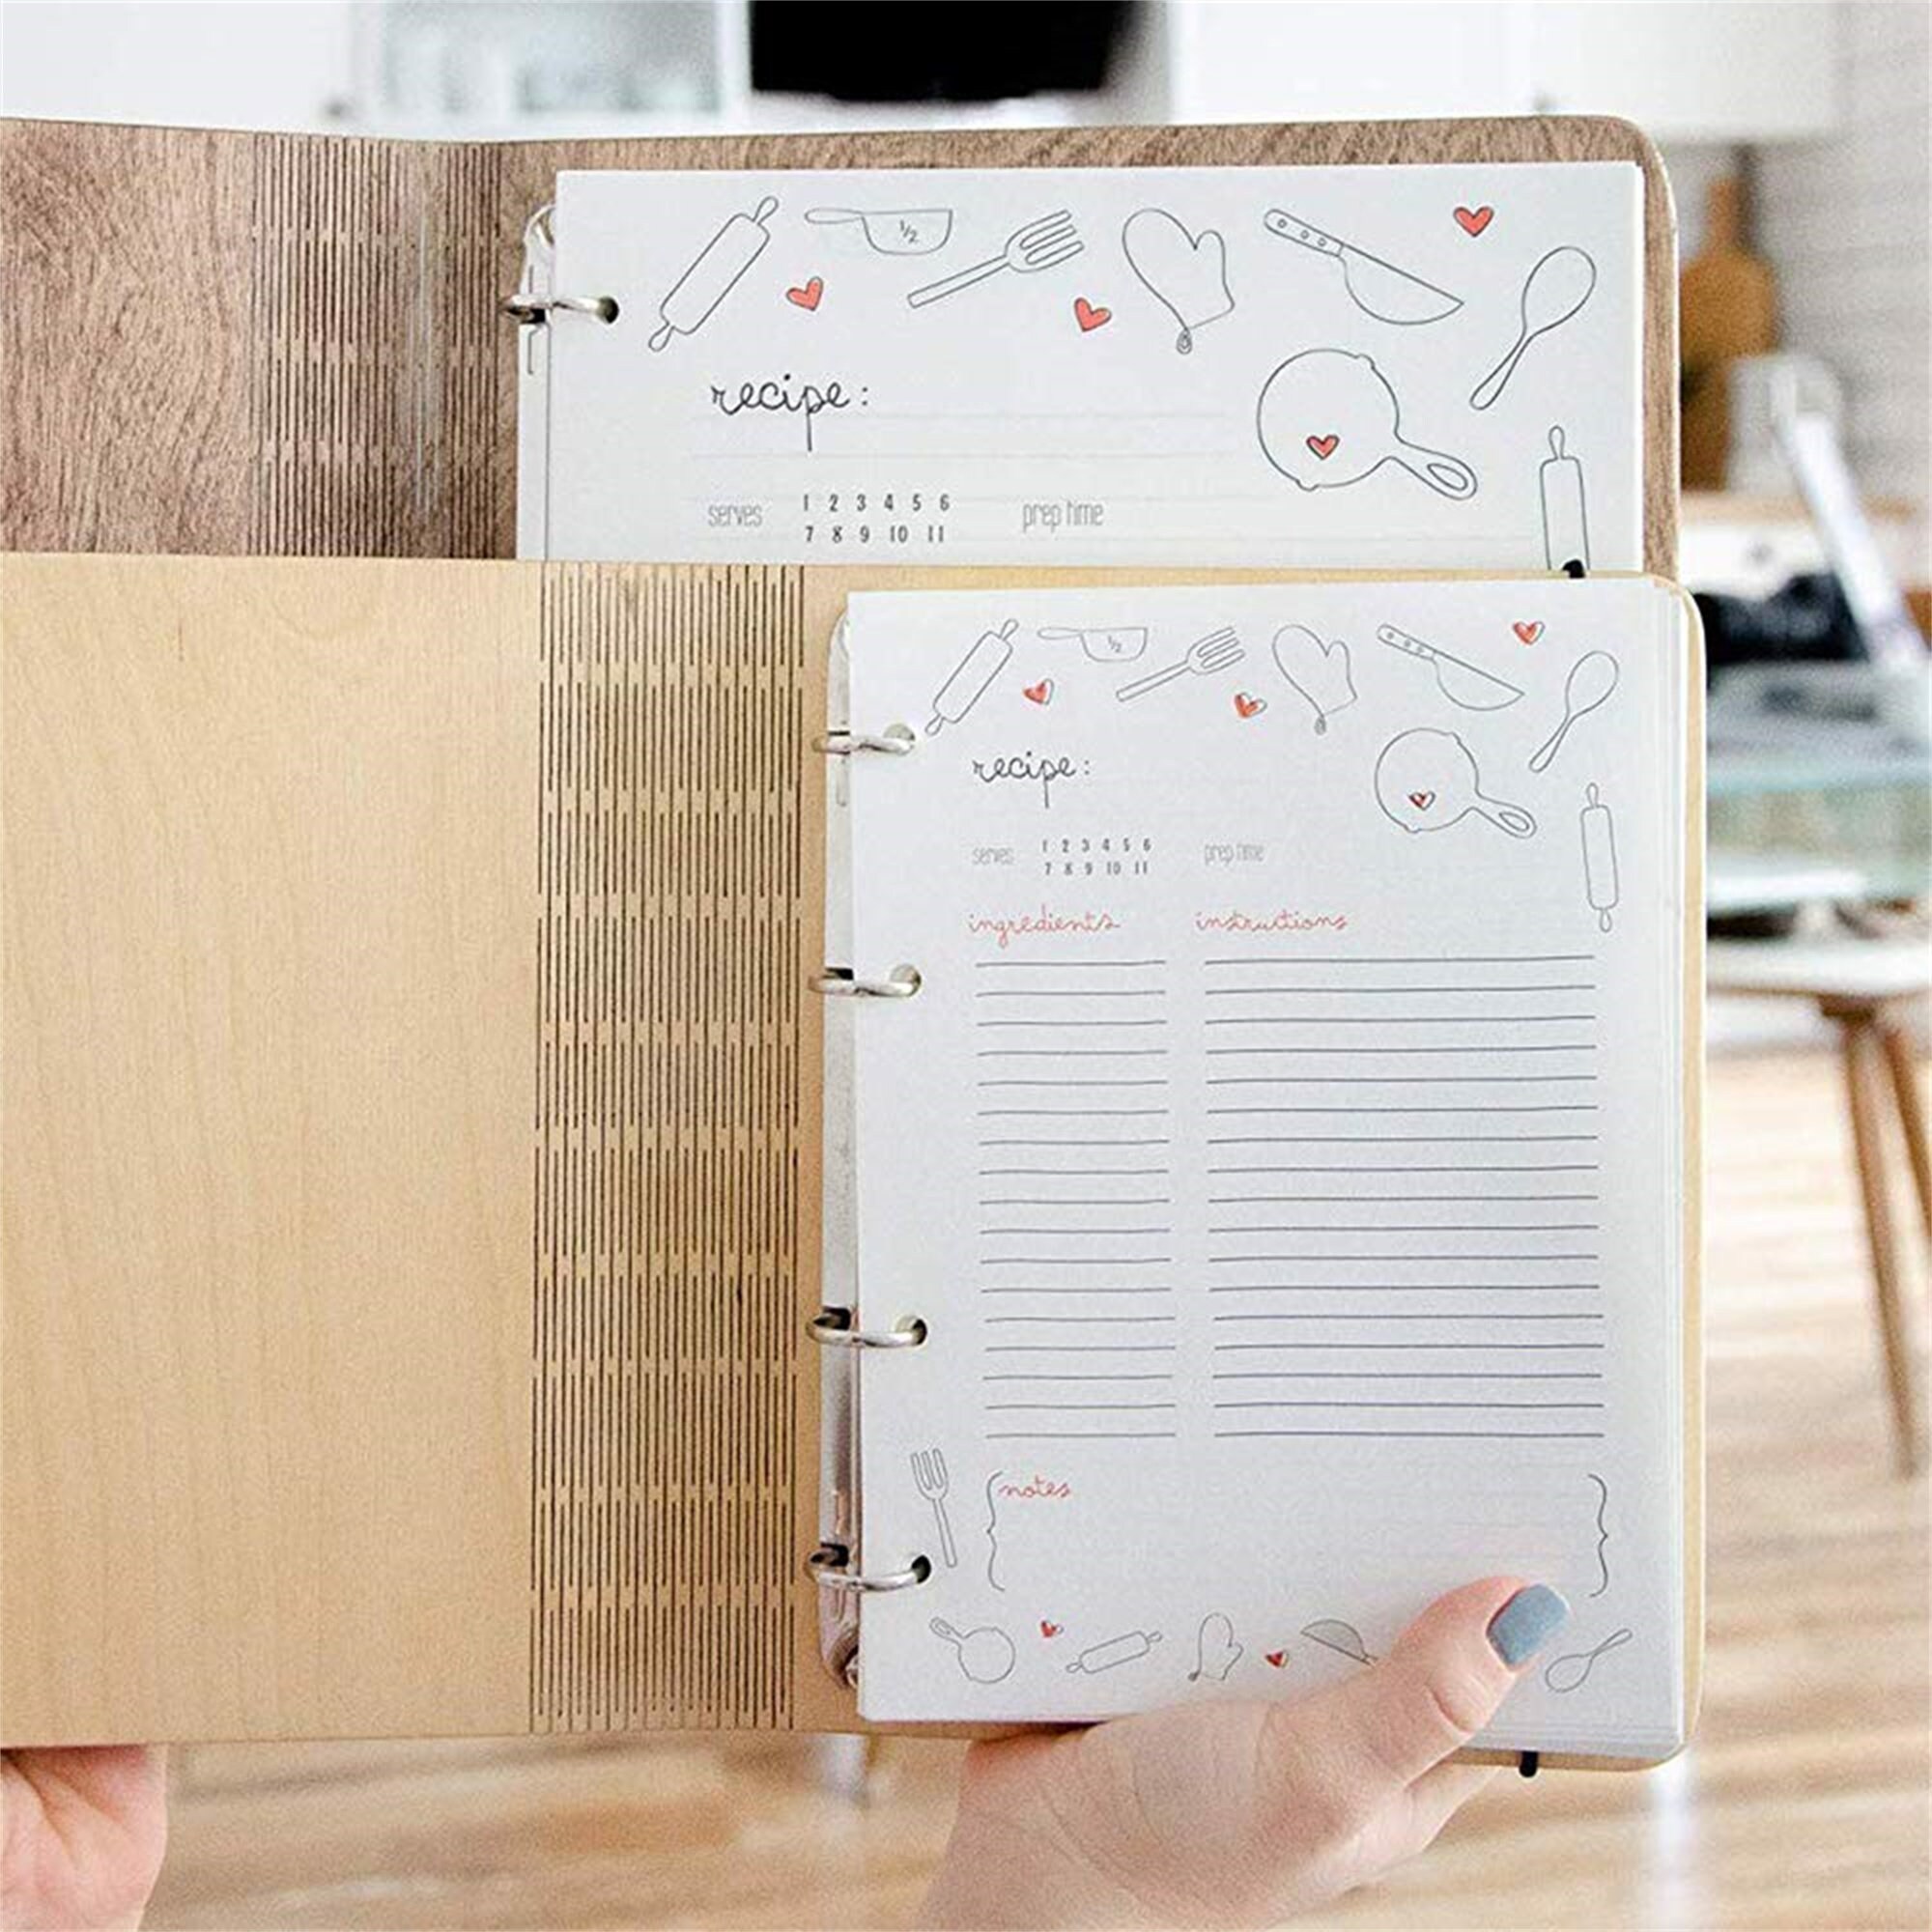 1/2
recipe:
serves 1 2 3 4 5 6 prep time
7 8 9 10 11
1/2
recipe:
serves 1 2 3 4 5 6 prep time
7 8 9 10 11
ingredients instructions
notes